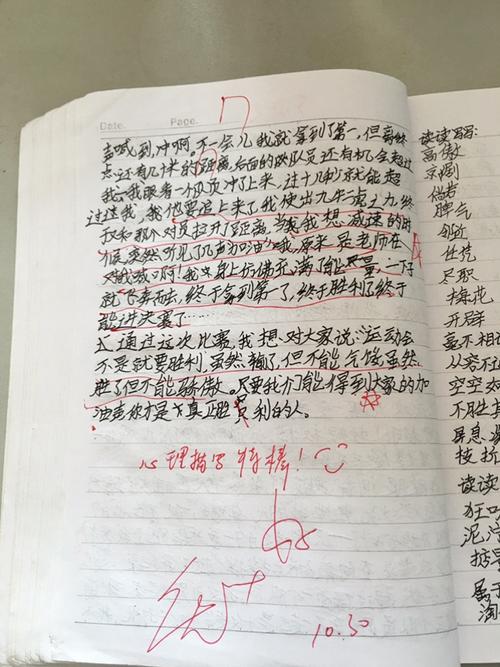 Date. Page.
声喊到,冲啊,不一会儿我就拿到了第一,但离终
点还有几米的距离,后面的队员还有机会超过
我一眼看一个队员冲了上来,过十几秒就能超
过我,我他要追上来了我使出九牛二虎之力,终
于和那个对员拉开了距离,当我我想减速的时
候突然听见了几声加油哦,原来是老师在
对我喊可啊!我身上仿佛充满了能量,一下子
就飞奔而去,终于拿到第一了,终于胜利了终于
能进决赛了……
通过这次比赛,我想对大家说:运动会
不是就要胜利,虽然输了,但不能气馁虽然
胜了但不能骄傲。只要我们能得到大家的加
油声你才是真正胜利的人。
心理描写特棒!
优+
10.30
读读写写:
高傲
京剧
做着
脾气
邻近
仕芫
尽职
梅花
开辟
毫不相
从容不
空空
不胜
屏息
枝折
读读
狂
泥泞
掂量
属于
淘